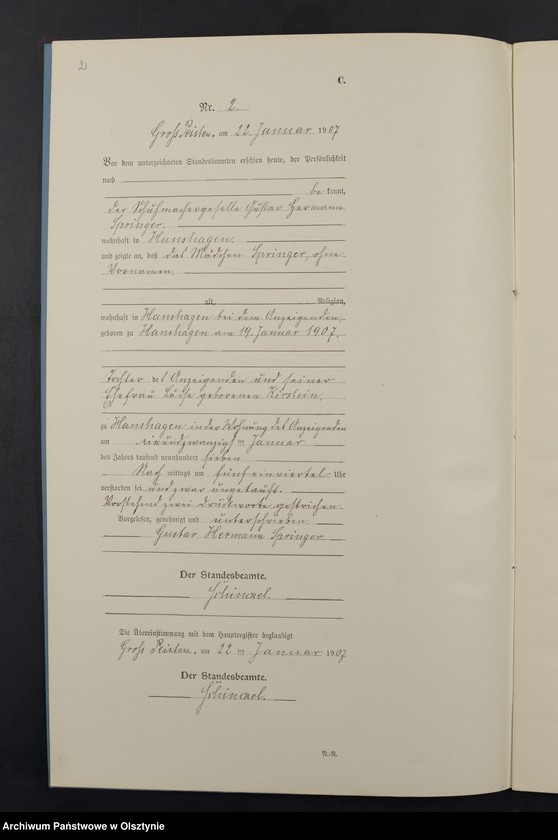 2
C.
Nr. 2.
Gross Peisten, am 22. Januar 1907
Vor dem unterzeichneten Standesbeamten erschien heute, der Persönlichkeit
nach
be kannt,
der Schuhmachergeselle Gustav Hermann
Springer.
wohnhaft in Hanshagen.
und zeigte an, daß das Mädchen Springer, ohne
Vornamen,
alt, Religion,
wohnhaft in Hanshagen bei dem Anzeigenden,
geboren zu Hanshagen am 19. Januar 1907,
Tochter des Anzeigenden und seiner
Ehefrau geborenen Kirstein,
zu Hanshagen in der Wohnung des Anzeigenden
am einundzwanzigsten Januar
des Jahres tausend neunhundert sieben
Nach mittags um fünfeinviertel Uhr
verstorben sei und zwar ungetauft.
Vorstehend zwei Druckworte gestrichen.
Vorgelesen, genehmigt und unterschrieben
Gustav Hermann Springer
Der Standesbeamte.
Schinckel.
Die Übereinstimmung mit dem Hauptregister beglaubigt
Gross Peisten, am 22 ten Januar 1907
Der Standesbeamte.
Schinckel.
N.-R.
Archiwum Państwowe w Olsztynie